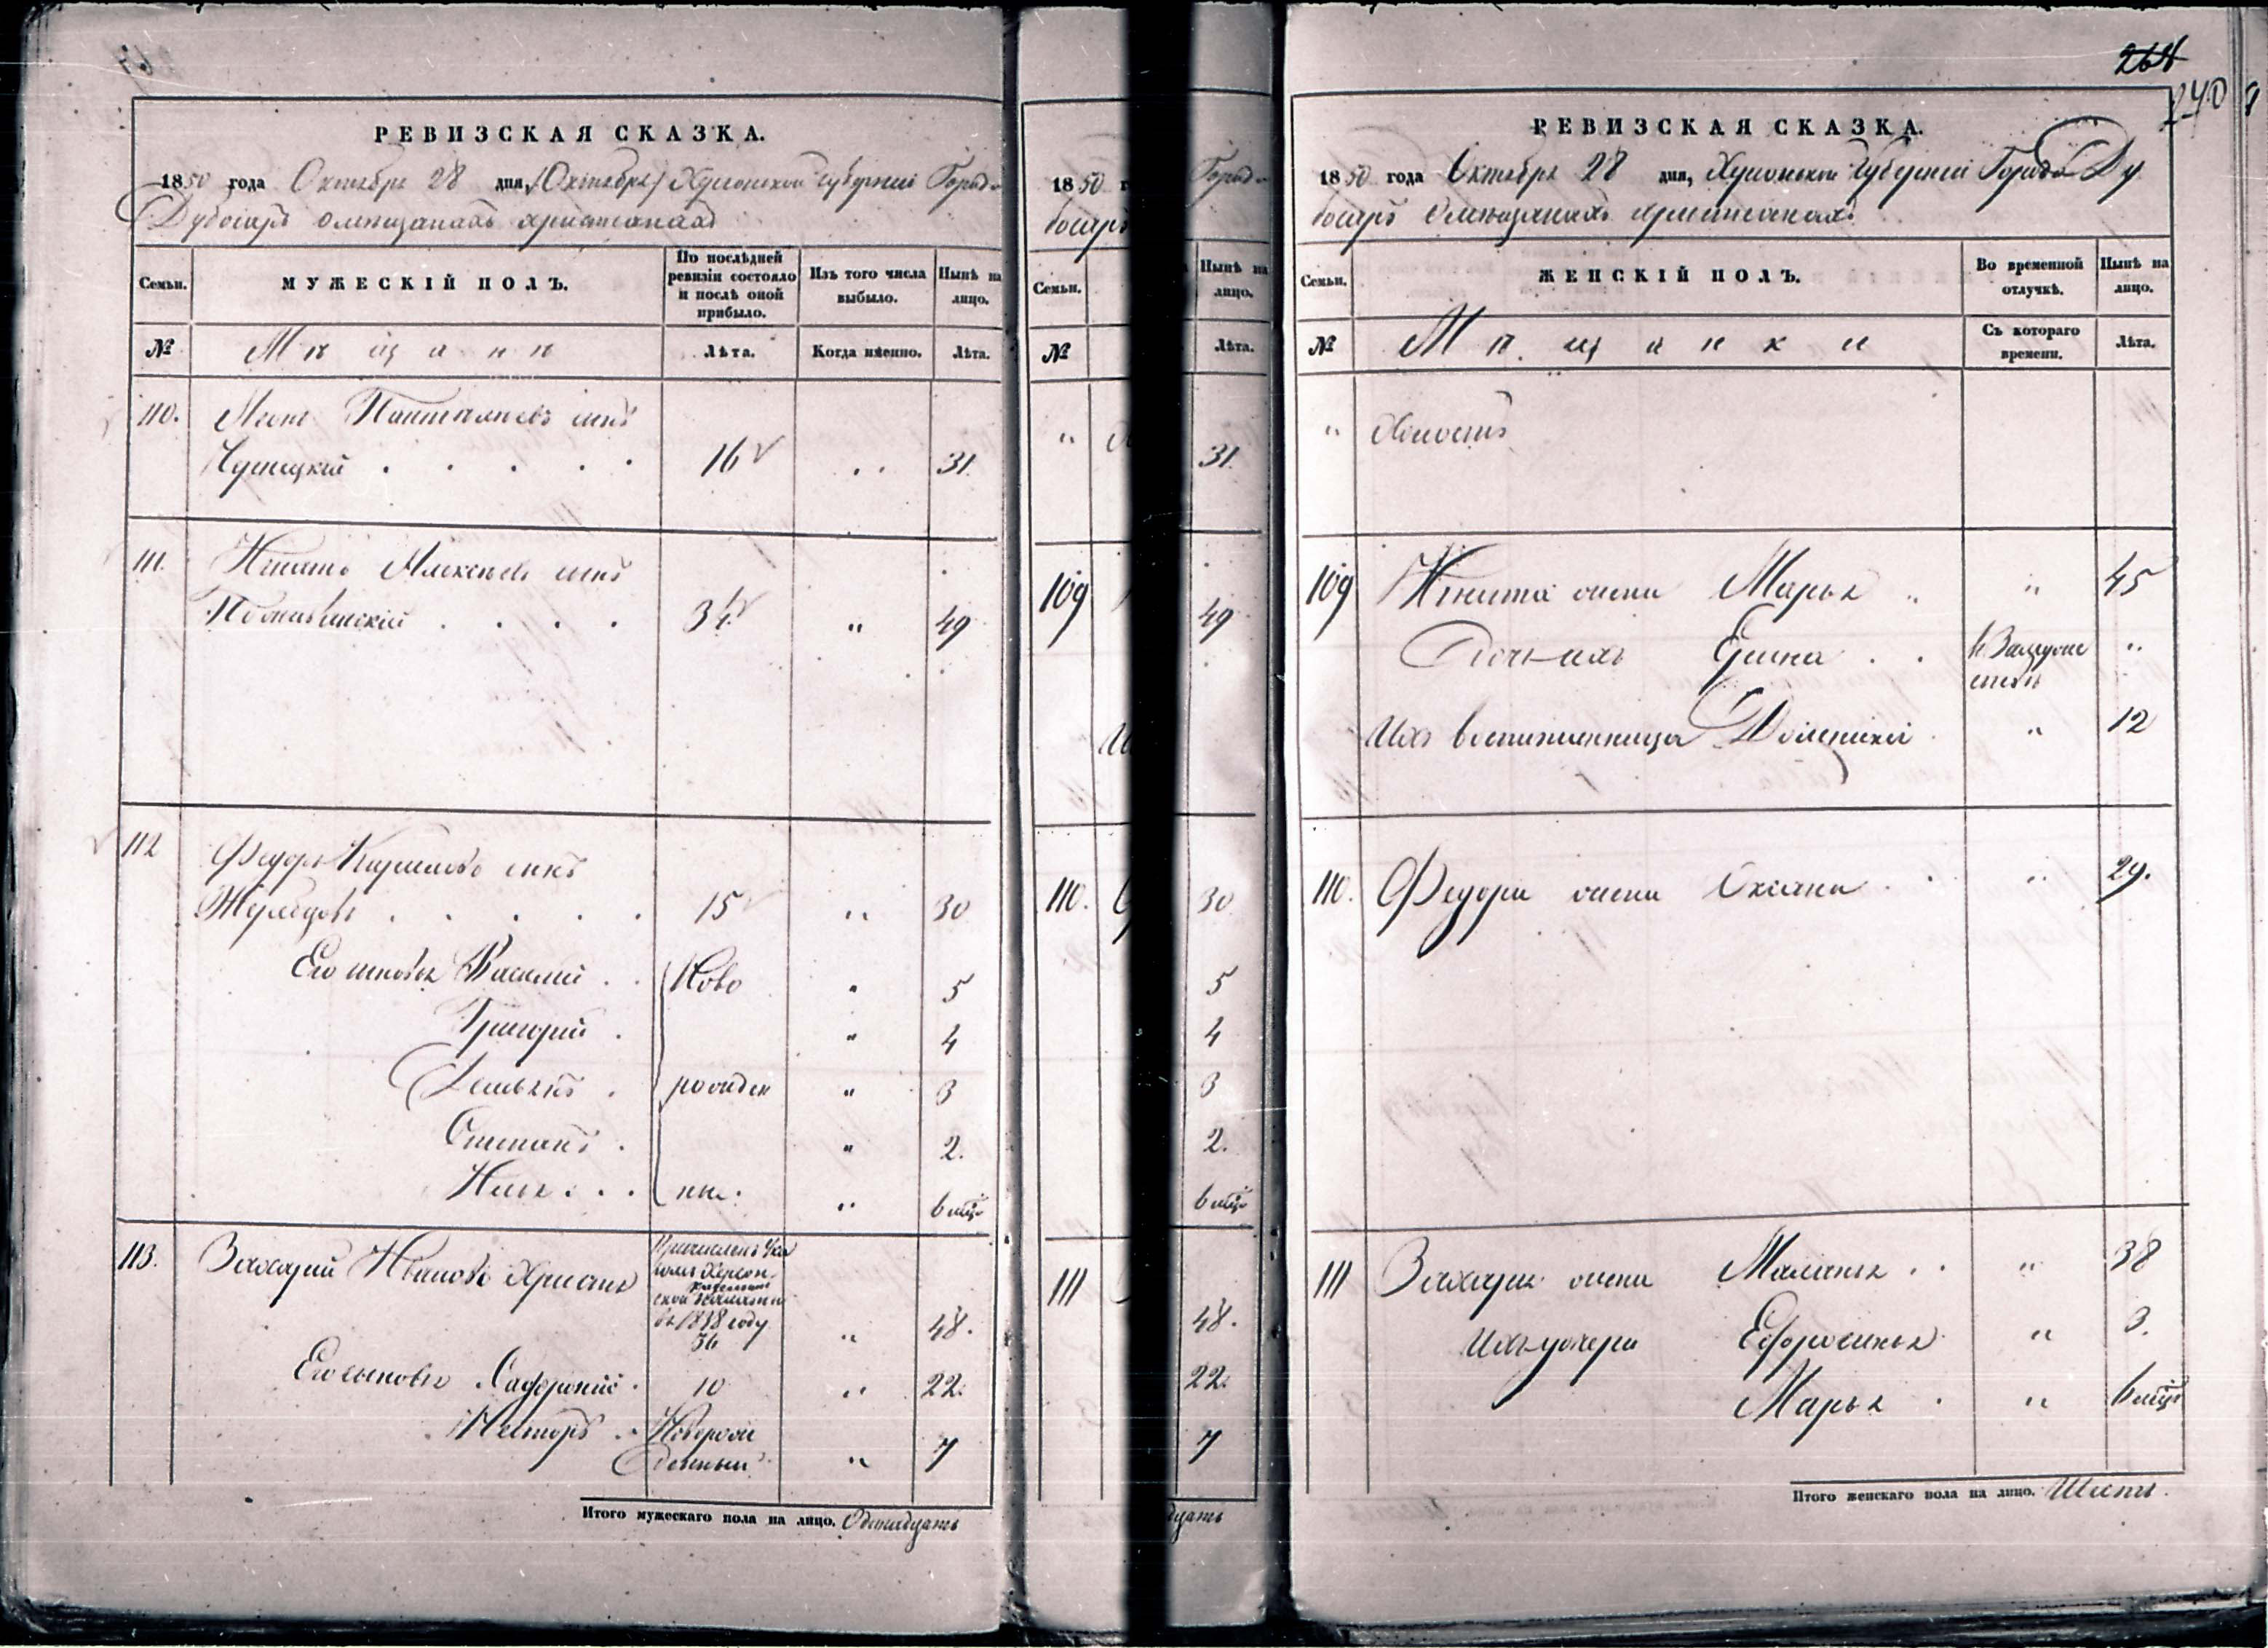 РЕВИЗСКАЯ СКАЗКА.
1850 года Октября 28 дня, (Октября) Херсонской губерніи Города
Дубосаръ о мещанахъ христіанахъ
Семьи.
МУЖЕСКІЙ ПОЛЪ.
По послѣдней ревизіи состояло и послѣ оной прибыло.
Изъ того числа выбыло.
Нынѣ на лицо.
№
Мѣщане
Лѣта.
Когда именно.
Лѣта.
110.
сынъ
16
31.
111.
Игнатъ Алексѣевъ сынъ
34
"
49
112
Федоръ Кириловъ сынъ
15
"
30
Его сыновья Василій
Ново
"
5
Григорій
"
4
Демьянъ
рожден
"
3
Степанъ
"
2.
Илья
ные.
"
6 мѣся
113.
Захарій Ивановъ Христя
Причисленъ Ука
зомъ Херсон
ской Казенной Палаты
въ 1838 году
36
"
48.
Его сыновья Сафроній
10
"
22.
Несторъ
Новорож
денный
"
7
Итого мужескаго пола на лицо. Одинадцать
1850 г
Города
босаръ
Семьи.
Нынѣ на лицо.
№
Лѣта.
"
31.
109
49
И
110.
30
5
4
3
2.
6 мѣся
111
48.
22.
7
дцать
264
240
РЕВИЗСКАЯ СКАЗКА.
1850 года Октября 28 дня, Херсонской Губерніи Города Ду
босаръ о мещанахъ христіанахъ
Семьи.
ЖЕНСКІЙ ПОЛЪ.
Во временной отлучкѣ.
Нынѣ на лицо.
№
Мѣщанки
Съ котораго времени.
Лѣта.
" Холостъ
109 Игната жена Марья " 45
Дочь ихъ Ирина въ Замуже "
ствѣ
Ихъ воспитанница Домникія " 12
110. Федора жена Оксана " 29.
111 Захарія жена Маланья " 38
Ихъ дочери Ефросинья " 3.
Марья " 6 мѣся
Итого женскаго пола на лицо. Шесть.